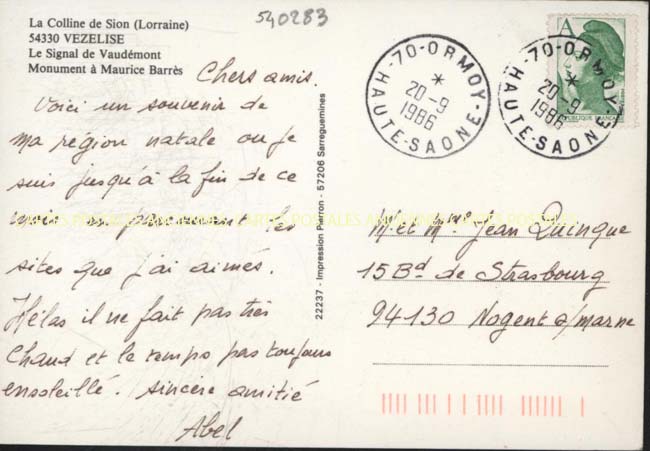 540283
La Colline de Sion (Lorraine)
54330 VEZELISE
Le Signal de Vaudémont
Monument à Maurice Barrès
Chers amis.
Voici un souvenir de
ma région natale ou je
suis jusqu'à la fin de ce
mois en parcourant les
sites que j'ai aimés.
Hélas il ne fait pas très
Chaud et le temps pas toujours
ensoleillé. sincère amitié
Abel
22237 - Impression Pierron - 57206 Sarreguemines
70-ORMOY
20-9
1986
HAUTE-SAONE
70-ORMOY
20-9
1986
HAUTE-SAONE
A
M. et Mme Jean Quinque
15 Bd de Strasbourg
94130 Nogent s/marne